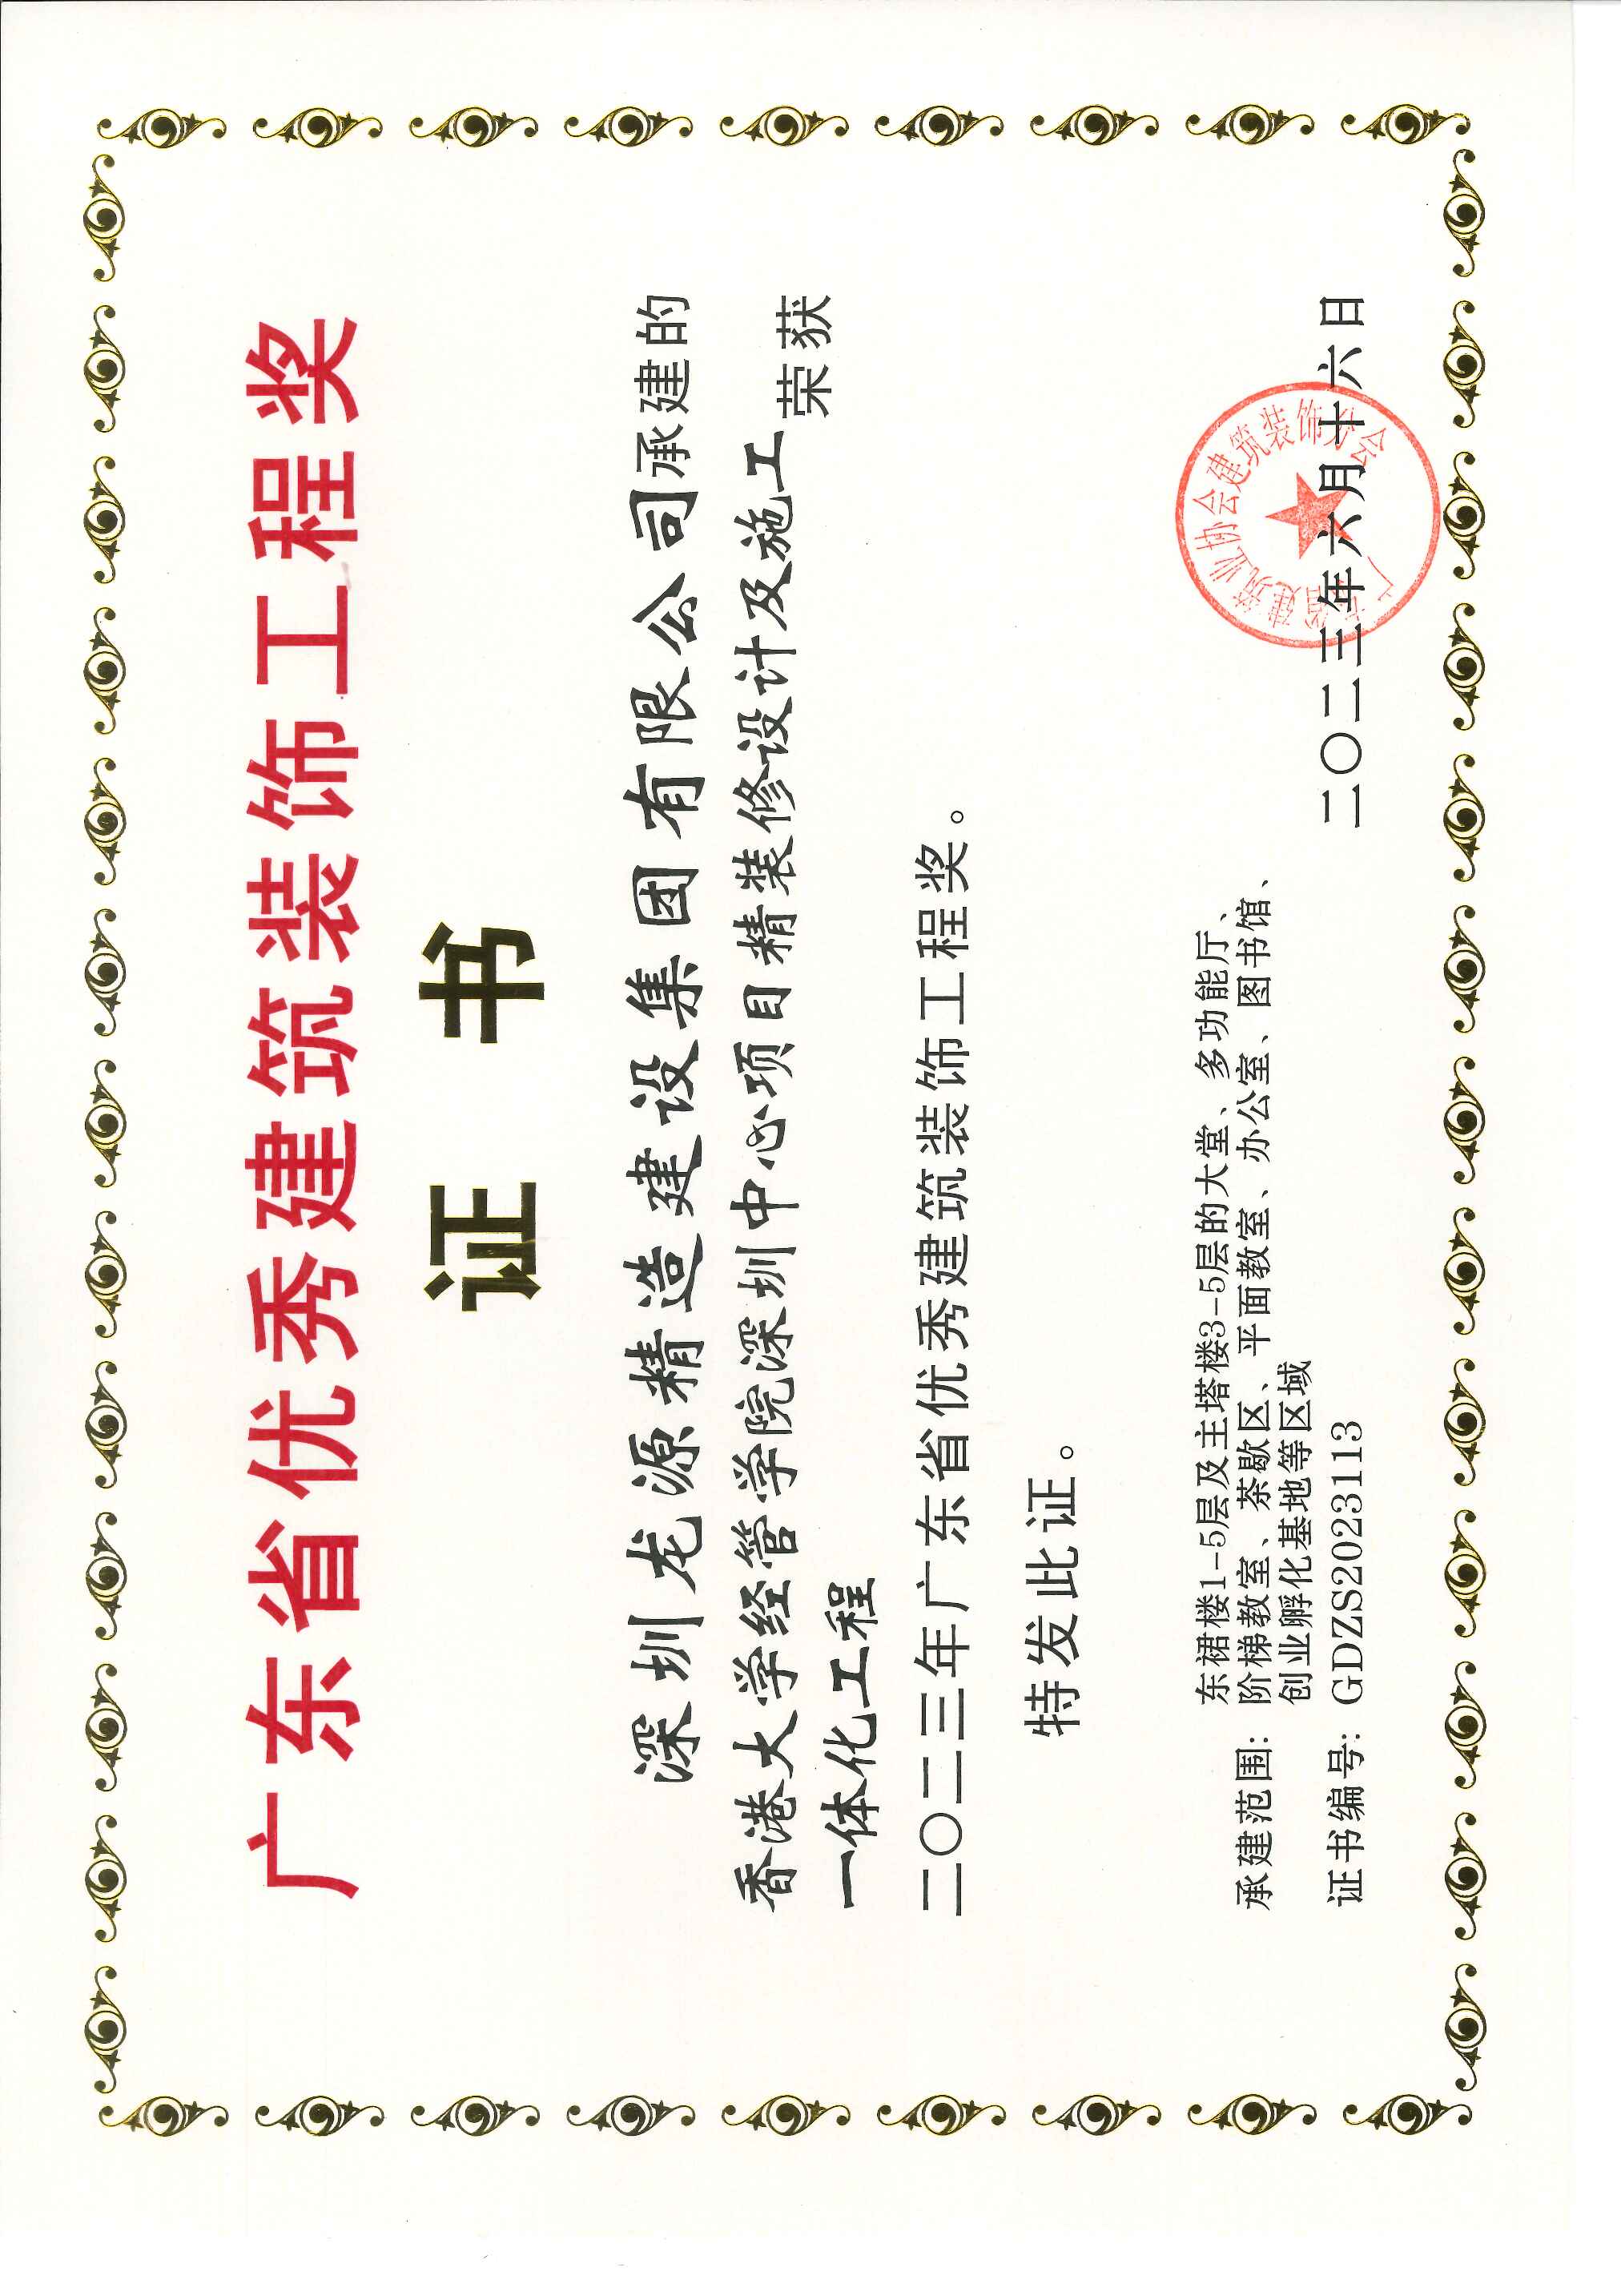 广东省优秀建筑装饰工程奖
证书
深圳龙源精造建设集团有限公司承建的
香港大学经管学院深圳中心项目精装修设计及施工
一体化工程
荣获
二〇二三年广东省优秀建筑装饰工程奖。
特发此证。
承建范围:
东裙楼1-5层及主塔楼3-5层的大堂、多功能厅、
阶梯教室、茶歇区、平面教室、办公室、图书馆、
创业孵化基地等区域
证书编号: GDZS2023113
二〇二三年六月十六日
广东省建筑业协会建筑装饰分会